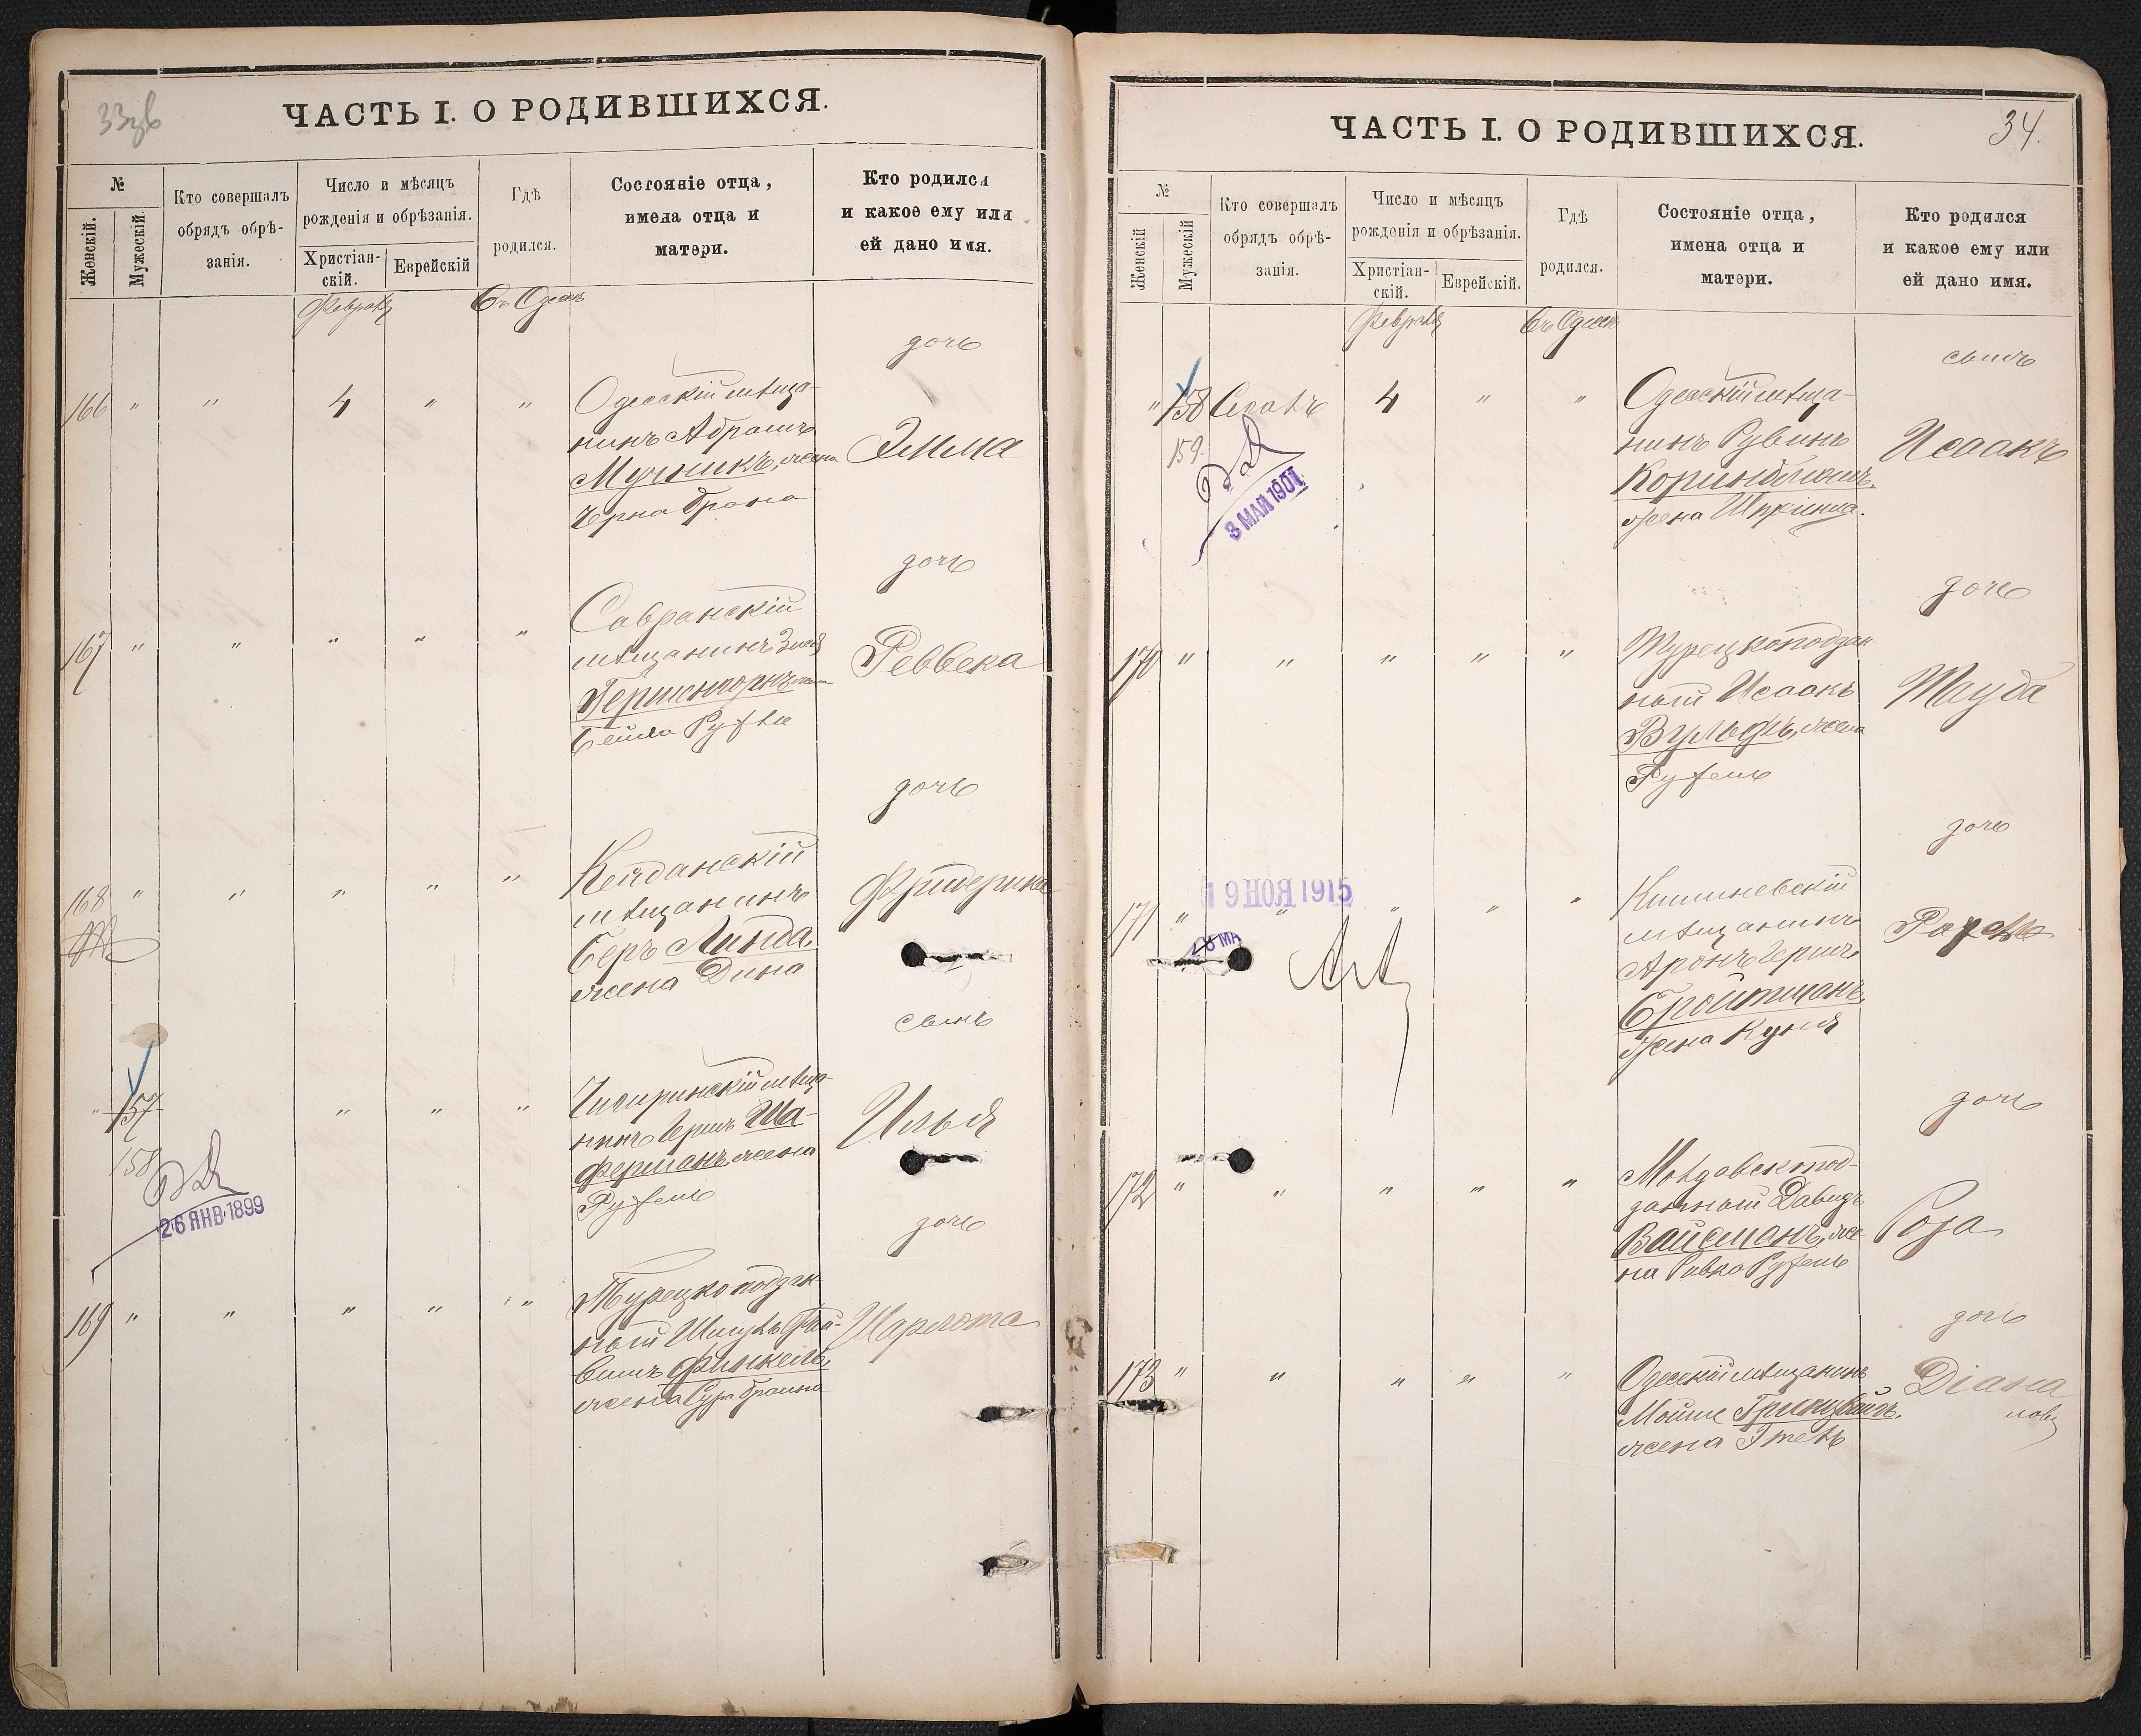 33 об
ЧАСТЬ I. О РОДИВШИХСЯ.
№
Женскій.
Мужескій.
Кто совершалъ
обрядъ обрѣ-
занія.
Число и мѣсяцъ
рожденія и обрѣзанія.
Христіан-
скій.
Еврейскій
Гдѣ
родился.
Состояніе отца,
имена отца и
матери.
Кто родился
и какое ему или
ей дано имя.
Февраля
Въ Одессѣ
дочь
166 " " 4 " "
Одесскій мѣща-
нинъ Абрамъ
Мучникъ, жена
Черна Брана
Эмма
дочь
167 " " " " "
Савранскій
мѣщанинъ
Гершенгорнъ жена
Бейла Рухля
Реввека
дочь
168 " " " " "
Кейданскій
мѣщанинъ
Беръ Линда,
жена Дина
Фридерика
сынъ
" 157 " " "
158
Чигиринскій мѣща-
нинъ Гершъ Ша-
ферманъ, жена
Рухель
Илья
26 ЯНВ 1899
дочь
169 " " " " "
Турецкоподдан-
ный Шмулъ Фай-
вишъ Финкель,
жена Сура Браина
Шарлота
ЧАСТЬ I. О РОДИВШИХСЯ.
34.
№
Женскій
Мужескій
Кто совершалъ
обрядъ обрѣ-
занія.
Число и мѣсяцъ
рожденія и обрѣзанія.
Христіан-
скій.
Еврейскій.
Гдѣ
родился.
Состояніе отца,
имена отца и
матери.
Кто родился
и какое ему или
ей дано имя.
Февраля
Въ Одессѣ
сынъ
" 158 4 " "
159.
Одесскій мѣща-
нинъ Рувинъ
Коринблитъ,
жена Шпринца.
Исаакъ
3 МАЯ 1901
дочь
170 " " " " "
Турецкоподдан
ный Исаакъ
Вульфъ, жена
Рухель
Тауба
дочь
171 " " " " "
19 НОЯ 1915
Кишиневскій
мѣщанинъ
Аронъ Гершъ
Бройтманъ,
жена Куня
Рахель
дочь
172 " " " " "
Молдавскопод-
данный Давидъ
Вайсманъ, же-
на Ривка Рухель
Роза
дочь
173 " " " " "
Одесскій мѣщанинъ
Мойше Гринцвайгъ,
жена Этель
Діана